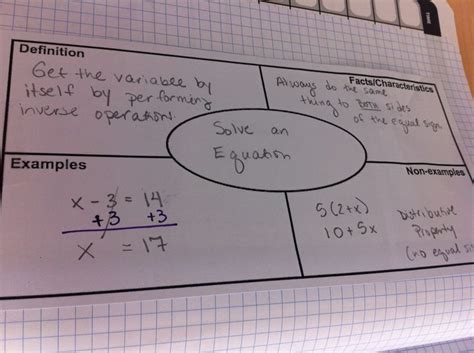 Definition
Get the variable by
itself by performing
inverse operations.
Facts/Characteristics
Always do the same
thing to BOTH sides
of the equal sign
Solve an
Equation
Examples
x - 3 = 14
+3 +3
x = 17
Non-examples
5(2+x)
10+5x
Distributive
Property
(no equal si